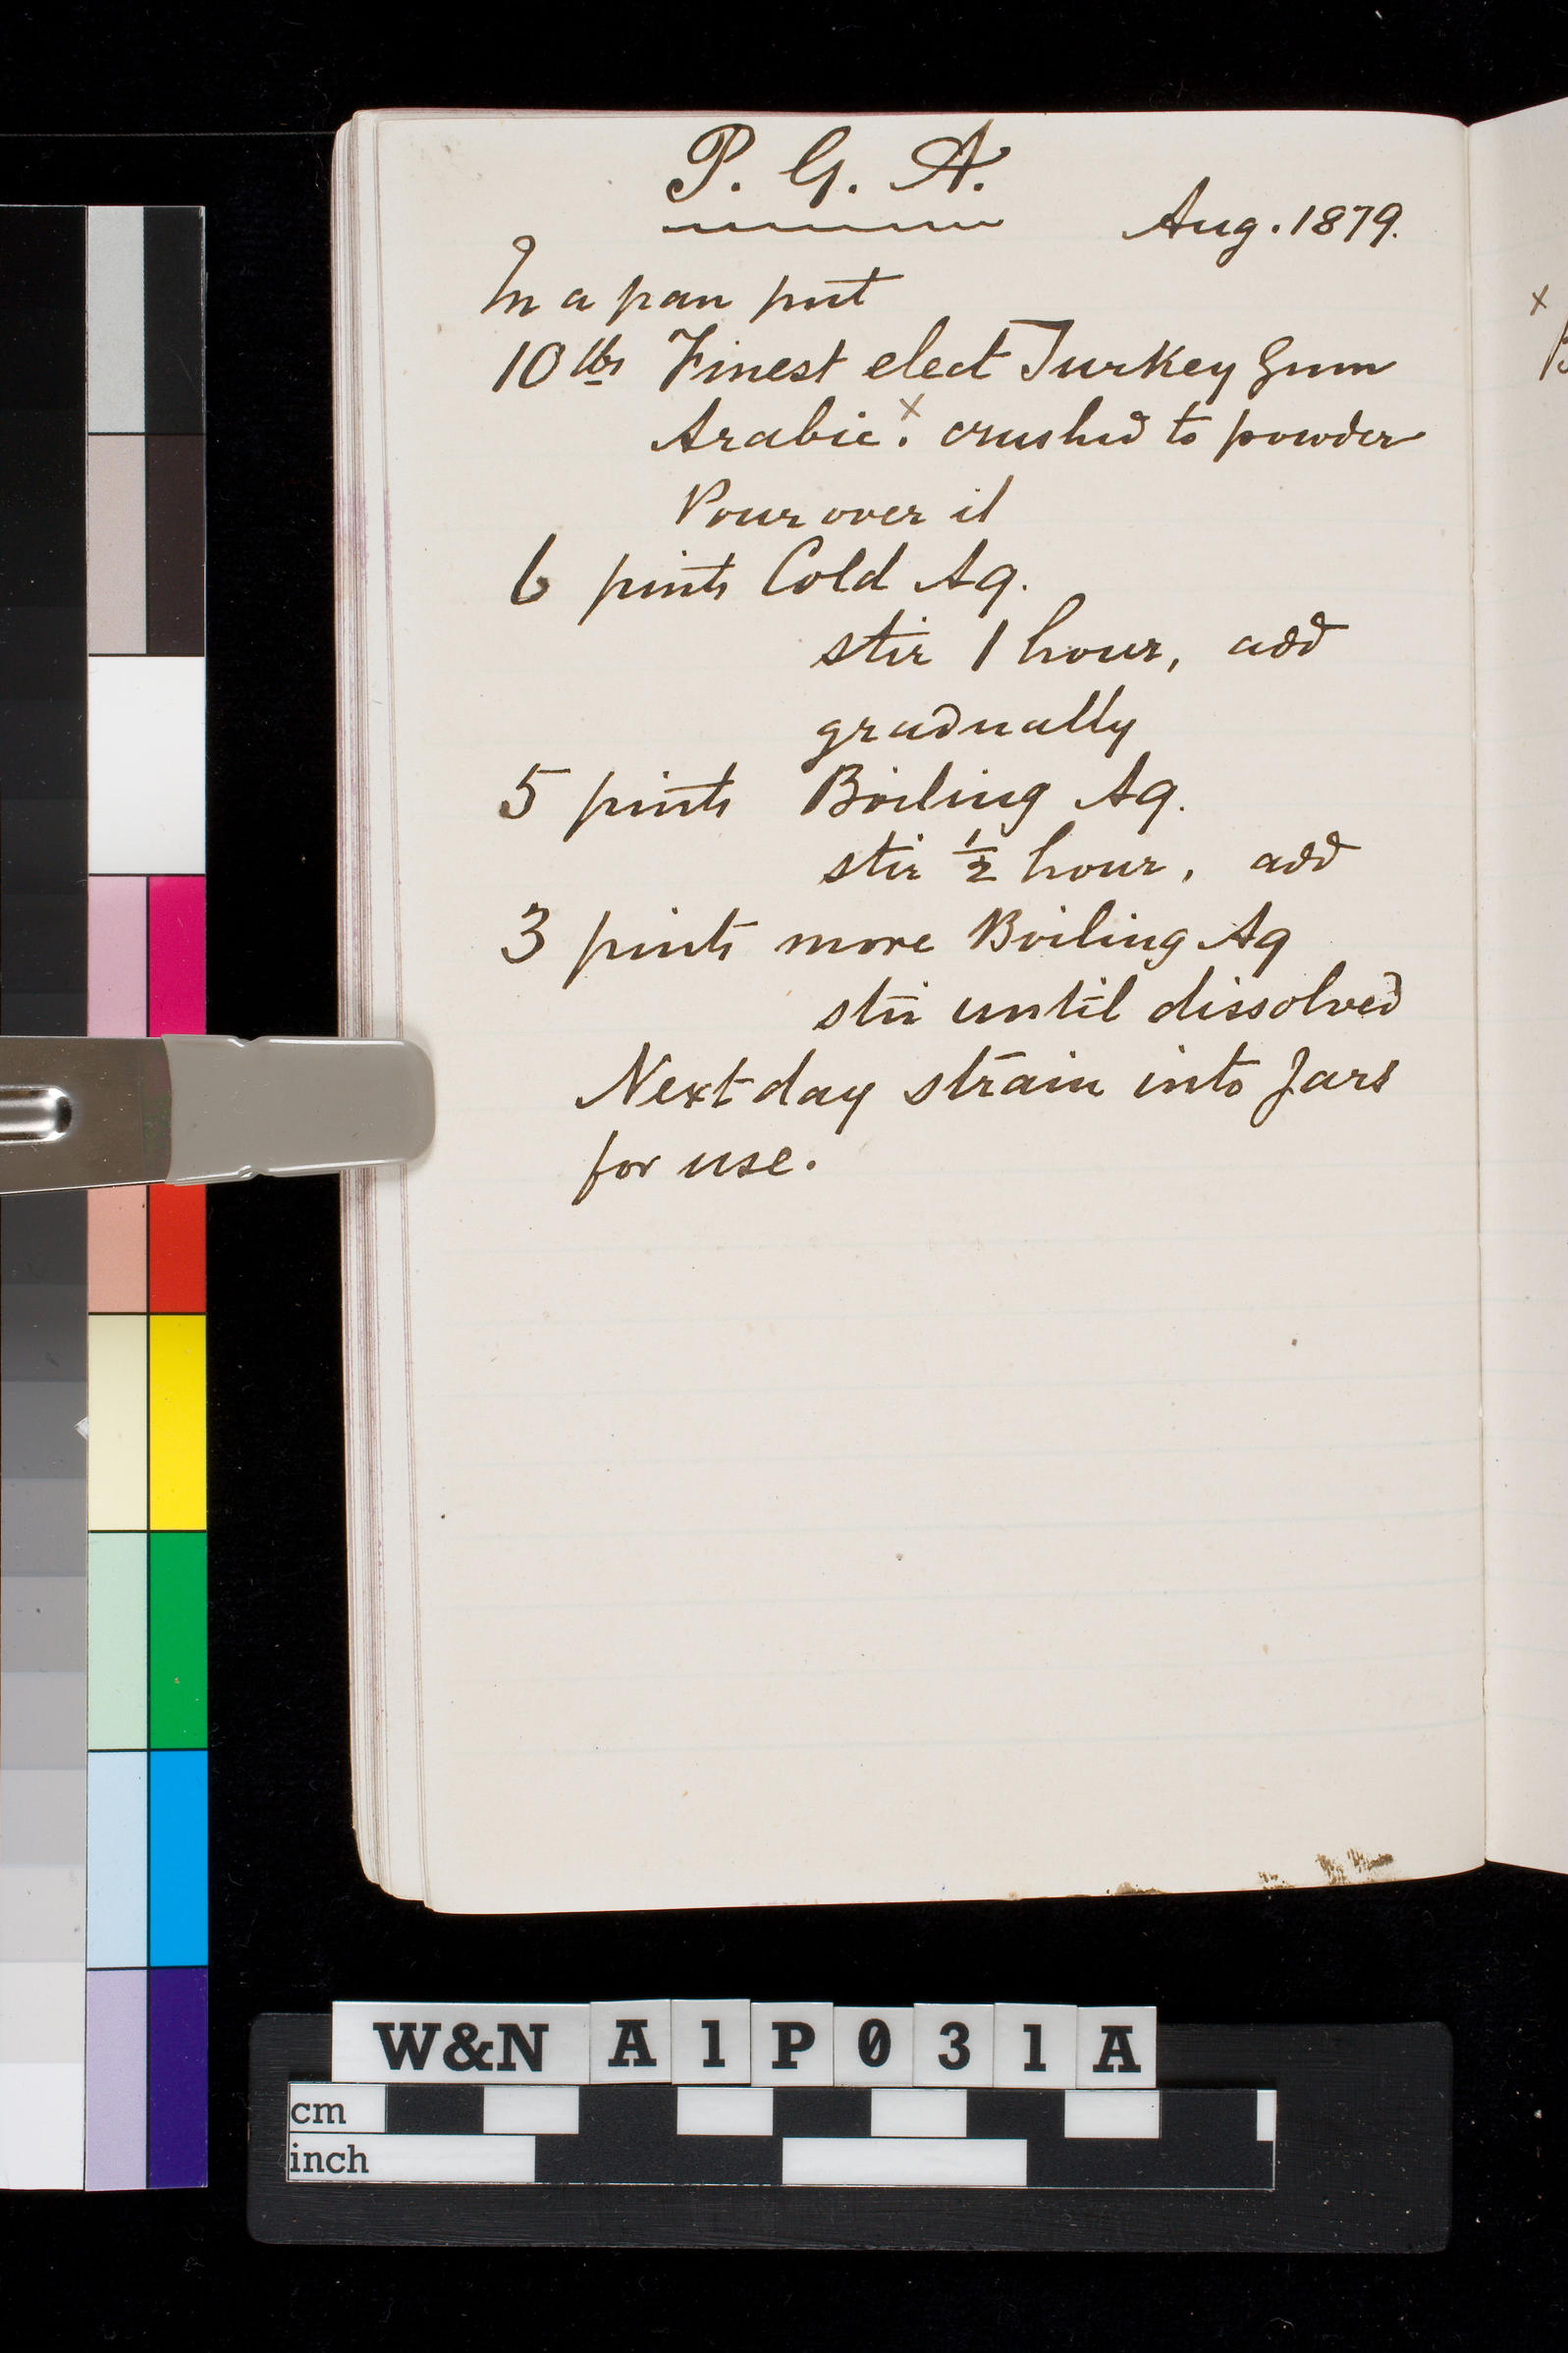 P. G. A.
Aug. 1879.
In a pan put
10 lbs Finest elect Turkey Gum
Arabic x. crushed to powder
Pour over it
6 pints Cold Aq.
stir 1 hour, add
gradually
5 pints Boiling Aq.
stir ½ hour, add
3 pints more Boiling Aq
stir until dissolved
Next day strain into Jars
for use.
x
W&N A1P031A
cm
inch